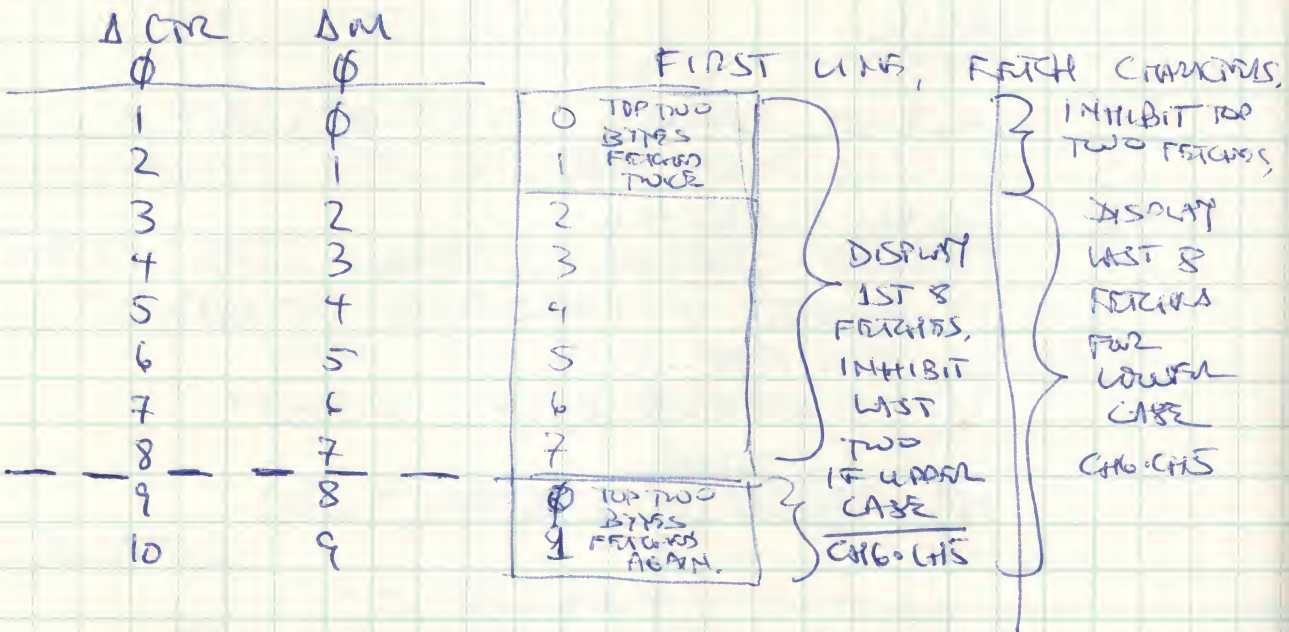 Δ CTR Δ M
Ø Ø
FIRST LINE, FETCH CHARACTERS,
1 Ø
2 1
3 2
4 3
5 4
6 5
7 6
8 7
9 8
10 9
0 TOP TWO
BYTES
1 FETCHED
TWICE
2
3
4
5
6
7
Ø TOP TWO
BYTES
1 FETCHED
AGAIN.
DISPLAY
1ST 8
FETCHES,
INHIBIT
LAST
TWO
IF UPPER
CASE
CH6·CH5
INHIBIT TOP
TWO FETCHES,
DISPLAY
LAST 8
FETCHES
FOR
LOWER
CASE
CH6·CH5